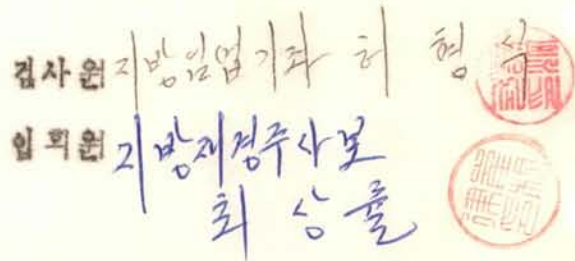 검사원 지방임업기좌 허 형 석
입회원 지방재경주사보
최 상 률